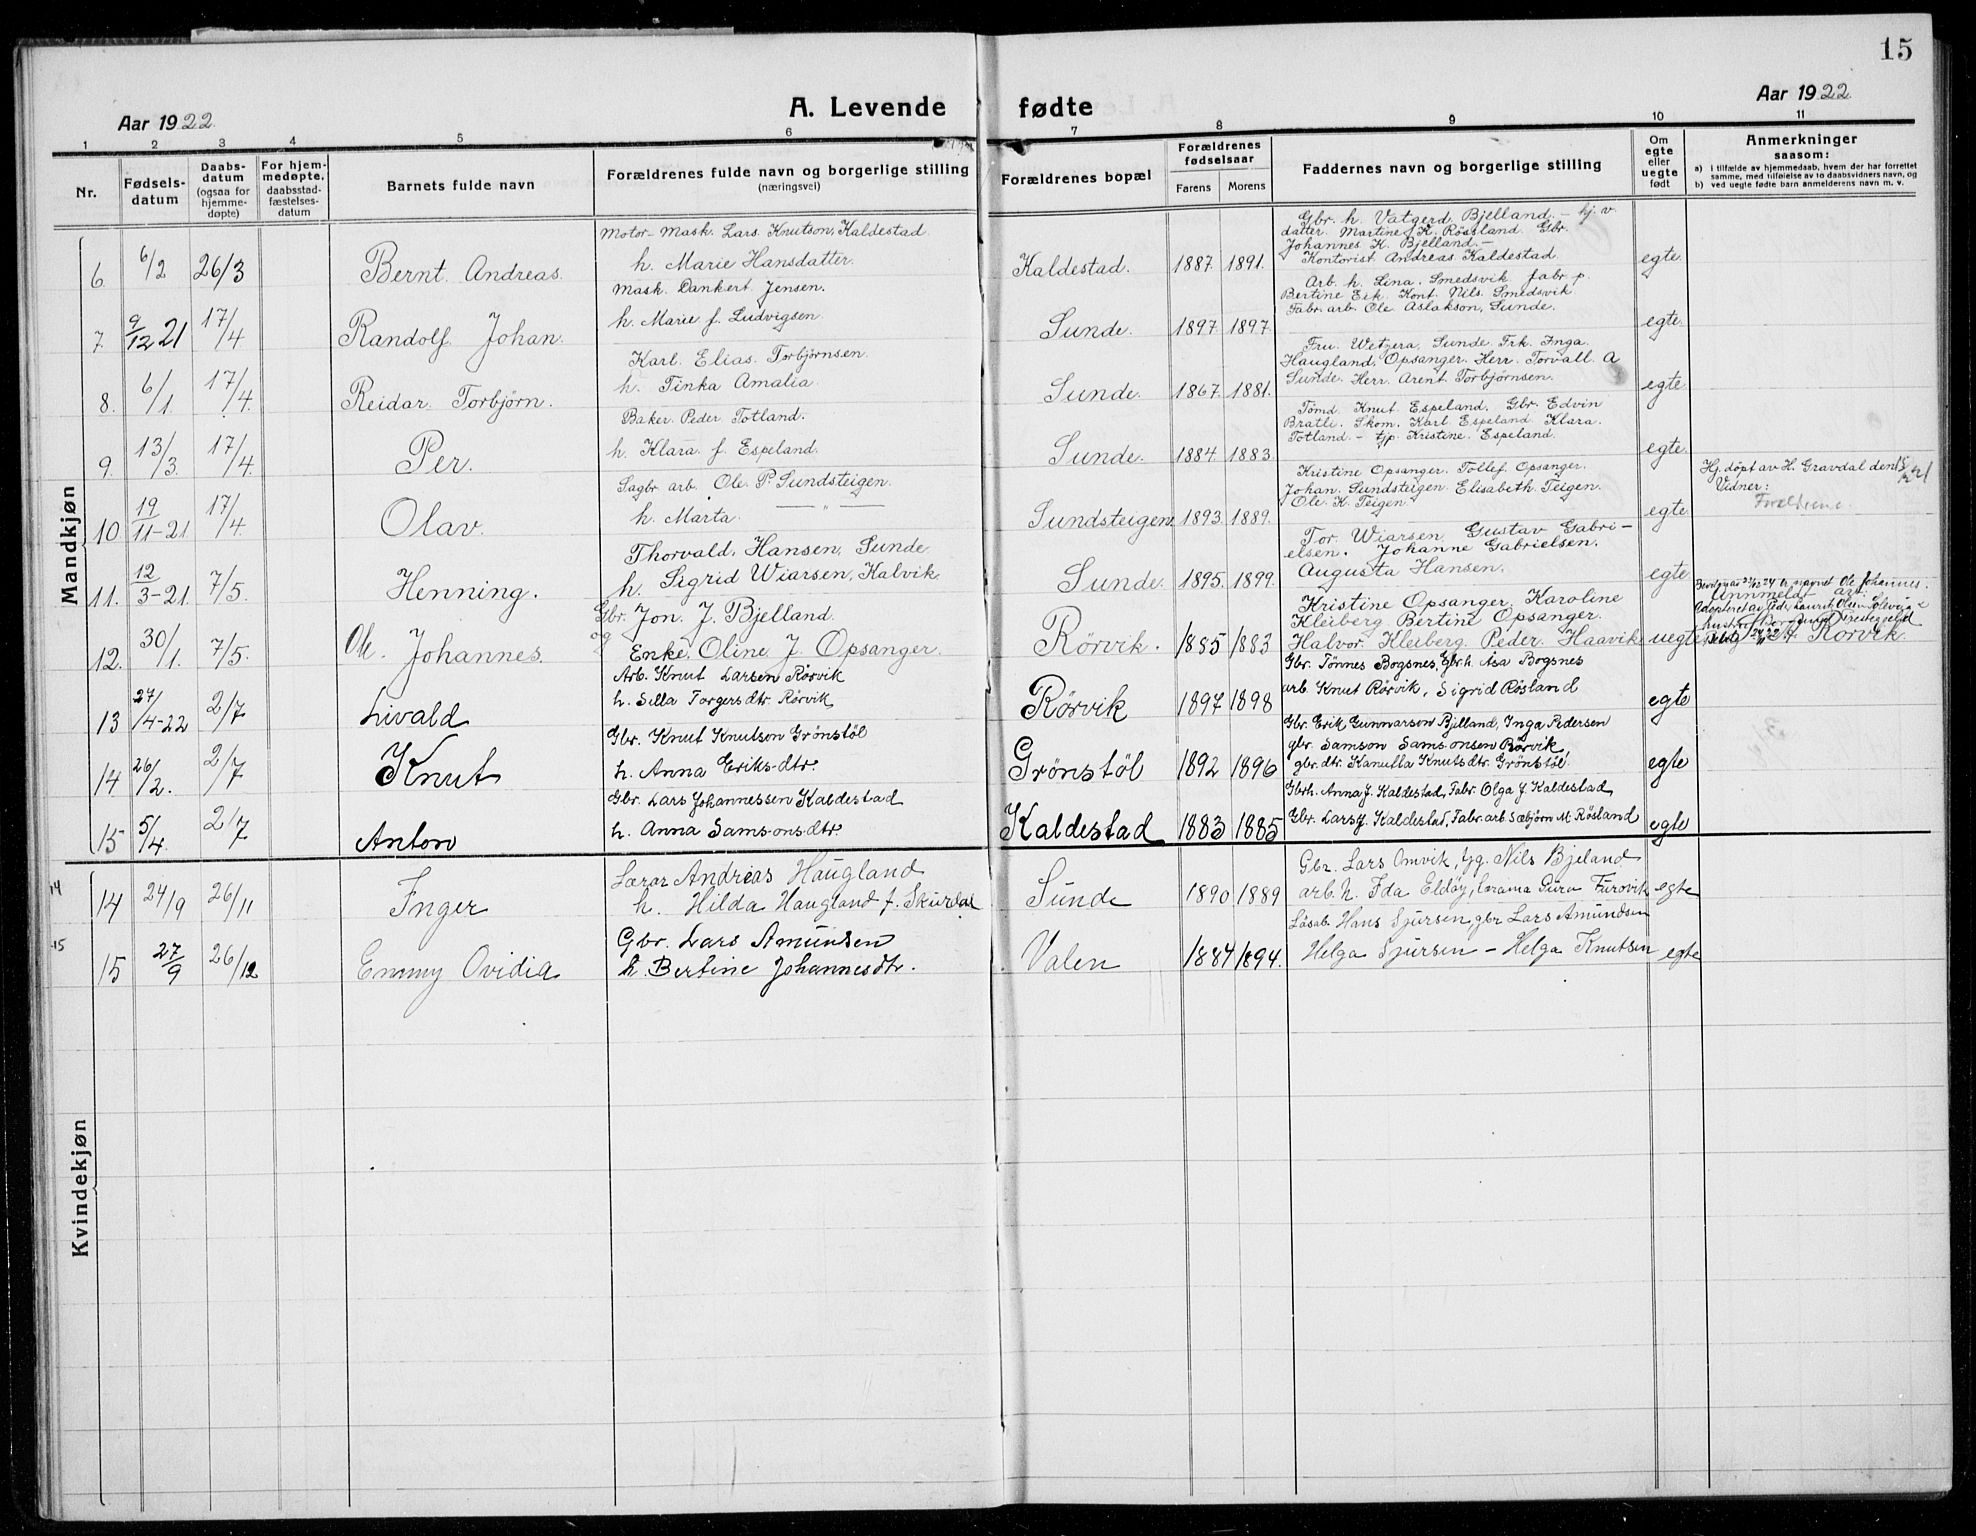 15
Aar 1922.
A. Levende fødte
Aar 1922
1 2 3 4 5 6 7 8 9 10 11
Nr.
Fødsels-
datum
Daabs-
datum
(ogsaa for
hjemme-
døpte)
For hjem-
medøpte.
daabsstad-
fæstelses-
datum
Barnets fulde navn
Forældrenes fulde navn og borgerlige stilling
(næringsvei)
Forældrenes bopæl
Forældrenes
fødselsaar
Farens Morens
Faddernes navn og borgerlige stilling
Om
egte
eller
uegte
født
Anmerkninger
saasom:
a) i tilfælde av hjemmedaab, hvem der har forrettet
samme, med tilføielse av to daabsvidners navn, og
b) ved uegte fødte barn anmelderens navn m. v.
Mandkjøn
6. 6/2 26/3 Bernt Andreas.
Motor-Mask. Lars Knutson, Kaldestad.
h. Marie Hansdatter.
Kaldestad. 1887. 1891.
Gbr. h. Valgerd Bjelland. – hj. v.
datter. Martine K. Røssland Gbr.
Johannes K. Bjelland. –
Kontorist Andreas Kaldestad
egte.
7. 9/12 21 17/4 Randolf Johan.
Mask. Dankert Jensen.
h. Marie f. Ludvigsen.
Sunde. 1897. 1897.
Arb. h. Lina. Smedsvik fabr. p.
Bertine Eik Kont. Nils. Smedsvik
Fabr. arb. Ole Aslakson, Sunde.
egte.
8. 6/1. 17/4. Reidar Torbjørn.
Karl Elias Torbjørnsen.
h. Tinka Amalia.
Sunde. 1867. 1881.
Fru. Wetzera, Sunde Frk. Inga.
Haugland, Opsanger. Herr. Torvall. A
Sunde. Herr. Arent Torbjørnsen.
egte.
9. 13/3. 17/4. Per.
Baker Peder Totland.
h. Klara f. Espeland.
Sunde. 1884. 1883.
Tømd Knut Espeland. Gbr. Edvin
Bratli. Skom. Karl Espeland Klara.
Totland – tjp. Kristine. Espeland.
egte.
10 19/11-21 17/4. Olav.
Sagbr. arb. Ole. P. Sundsteigen.
h. Marta. — „ —
Sundsteigen 1893. 1889.
Kristine Opsanger. Tollef. Opsanger.
Johan. Sundsteigen Elisabeth Teigen.
Ole. K. Teigen.
egte
Hj. døpt av H. Gravdal den
Vidner:
Foreldrene.
11. 12/3-21. 7/5. Henning.
Thorvald. Hansen, Sunde
h. Sigrid Wiarsen, Kalvik
Sunde. 1895. 1899.
Tor. Wiarsen Gustav Gabri-
elsen. Johanne Gabrielsen.
Augusta Hansen.
egte
12. 30/1. 7/5. Ole. Johannes.
Gbr. Jon. J. Bjelland.
og Enke. Oline J. Opsanger.
Rørvik. 1885 1883
Kristine Opsanger. Karoline
Kleiberg Bertine Opsanger.
Halvor. Kleiberg. Peder. Haavik
uegte
navnet Ole Johannes.
Annmeldt av:
Rørvik.
13 27/4-22 2/7 Livald
Arb. Knut Larsen Rørvik
h. Silla Torgersdtr. Rørvik
Rørvik 1897 1898
Gbr. Tønnes Bogsnes, Gbr.h. Åsa Bogsnes
arb. Knut Rørvik, Sigrid Røsland
egte
14. 26/2. 2/7 Knut
Gbr. Knut Knutson Grønstøl
h. Anna Eriks-dtr.
Grønstøl 1892 1896
Gbr. Erik Gunnarson Bjelland, Inga Pedersen
gbr. Samson Samsonsen Rørvik,
gbr.dtr. Kanutta Knutsdtr. Grønstøl.
egte
15 5/4. 2/7 Anton
Gbr. Lars Johannessen Kaldestad
h. Anna Samsonsdtr
Kaldestad 1883 1885
Gbrh. Anna J. Kaldestad, Fabr. Olga J Kaldestad
Gbr. Lars J. Kaldestad, Fabr. arb Sæbjørn M Røsland
egte
Kvindekjøn
14 14 24/9 26/11 Inger
Lærar Andreas Haugland
h. Hilda Haugland f. Skurdal
Sunde 1890 1889
Gbr. Lars Omvik, Nils Bjeland
arb. h. Ida Eldøy, Guru Furovik
egte
15 15 27/9 26/12 Emmy Ovidia
Gbr. Lars Amundsen
h. Bertine Johannesdtr.
Valen 1884 1894.
Løsab. Hans Sjursen, gbr Lars Amundsen
Helga Sjursen – Helga Knutsen
egte